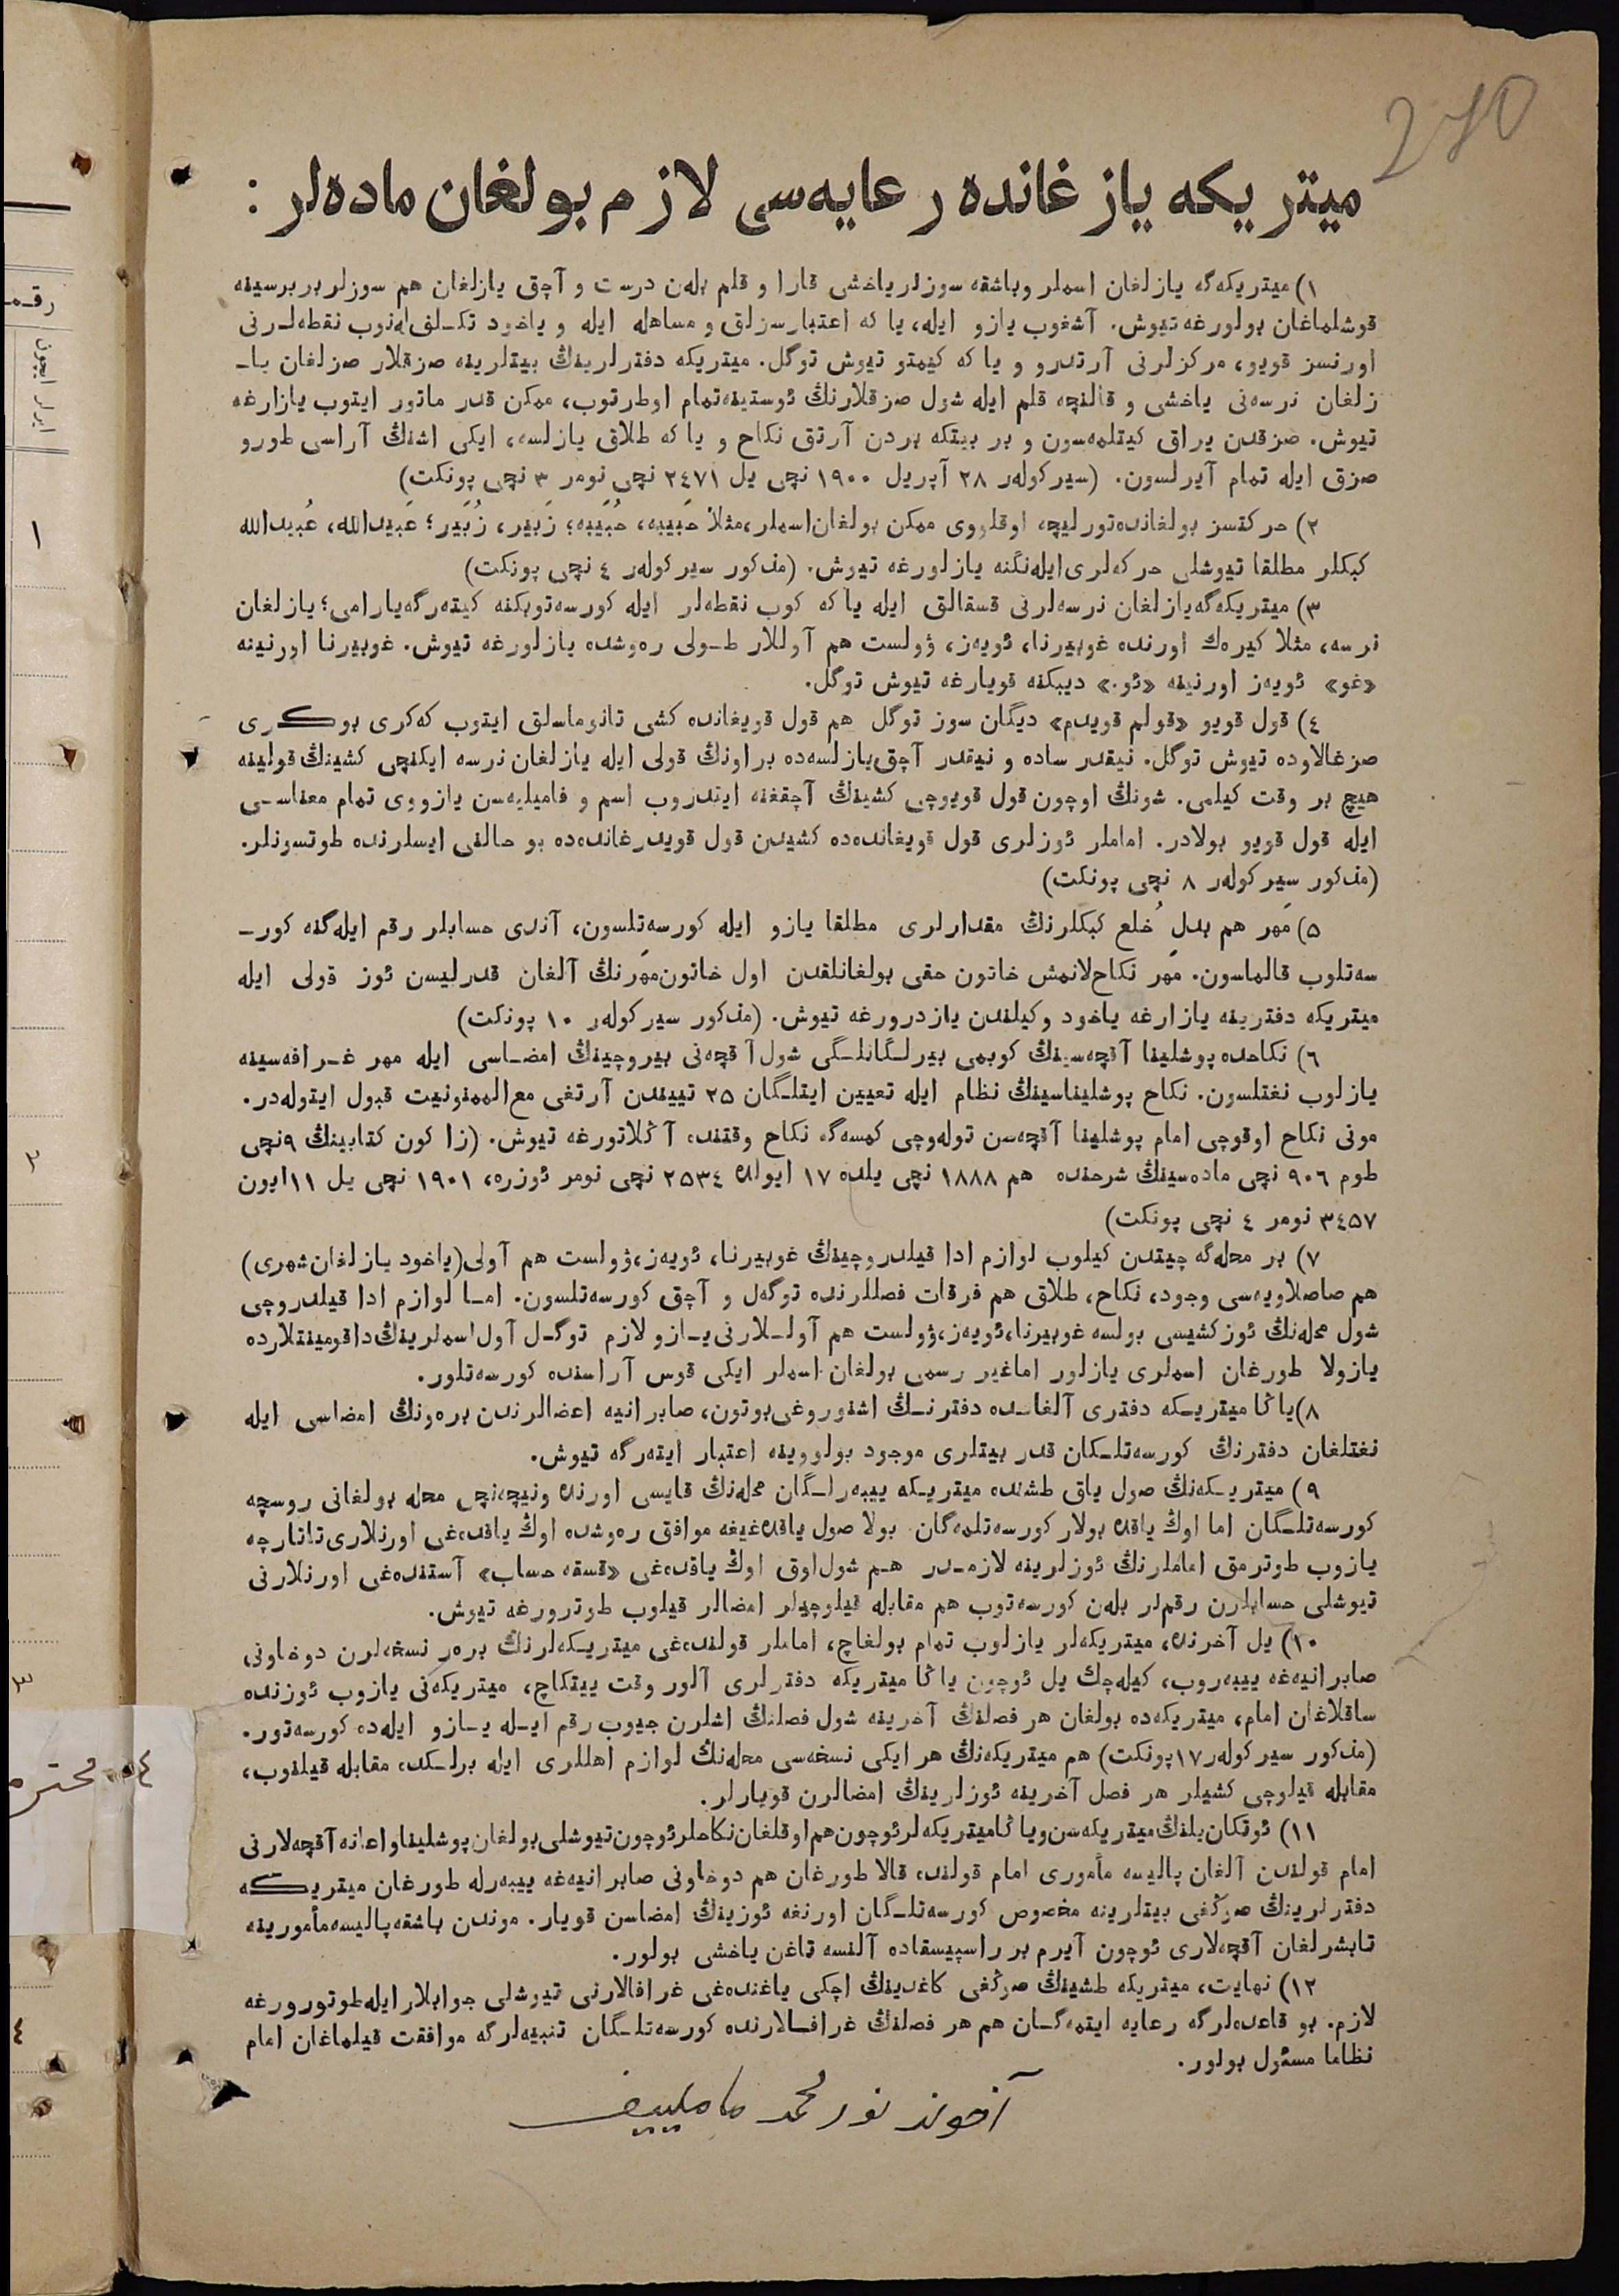 270
ميتريكه يازغانده رعايه‌سى لازم بولغان ماده‌لر :
١) ميتريكه‌گه يازلغان اسملر وباشقه سوزلر ياخشى قارا و قلم بله‌ن درست و آچق يازلغان هم سوزلر بربرسينه
قوشلماغان بولورغه تيوش. آشغوب يازو ايله، يا كه اعتبارسزلق و مساهله ايله و ياخود تكـلفله‌نوب نقطه‌لـرنى
اورنسز قويو، مركزلرنى آرتدرو و يا كه كيمتو تيوش توگل. ميتريكه دفترلرينڭ بيتلرينه صزقلار صزلغان يا-
زلغان نرسه‌نى ياخشى و قالنچه قلم ايله شول صزقلارنڭ ئوستينه‌تمام اوطرتوب، ممكن قدر ماتور ايتوب يازارغه
تيوش. صزقدن يراق كيتلمه‌سون و بر بيتكه بردن آرتق نكاح و يا كه طلاق يازلسه، ايكى اشنڭ آراسى طورو
صزق ايله تمام آيرلسون. (سيركوله‌ر ٢٨ آپريل ١٩٠٠ نچى يل ٢٤٧١ نچى نومر ٣ نچى پونكت)
٢) حركتسز بولغانده‌تورليچه اوقلووى ممكن بولغان‌اسملر،مثلا حَبيبه، حُبَيبه؛ زَبير، زُبَير؛ عَبيدالله، عُبيدالله
كبكلر مطلقا تيوشلى حركه‌لرى‌ايله‌نگنه يازلورغه تيوش. (مذكور سيركوله‌ر ٤ نچى پونكت)
٣) ميتريكه‌گه‌يازلغان نرسه‌لرنى قسقالق ايله يا كه كوب نقطه‌لر ايله كورسه‌توبكنه كيته‌رگه‌يارامى؛ يازلغان
نرسه، مثلا كيره‌ك اورنده غوبيرنا، ئويه‌ز، ۋولست هم آوللار طـولى ره‌وشده يازلورغه تيوش. غوبيرنا اورنينه
«غو» ئويه‌ز اورنينه «ئو.» ديبكنه قويارغه تيوش توگل.
٤) قول قويو «قولم قويدم» ديگان سوز توگل هم قول قويغانده كشى تانوماسلق ايتوب كه‌كرى بوكرى
صزغالاوده تيوش توگل. نيقدر ساده و نيقدر آچق‌يازلسه‌ده براونڭ قولى ايله يازلغان نرسه ايكنچى كشينڭ قولينه
هيچ بر وقت كيلمى. شونڭ اوچون قول قويوچى كشينڭ آچقغنه ايتدروب اسم و فاميليه‌سن يازووى تمام معناسـى
ايله قول قويو بولادر. اماملر ئوزلرى قول قويغانده‌ده كشيدن قول قويدرغانده‌ده بو حالنى ايسلرنده طوتسونلر.
(مذكور سيركوله‌ر ٨ نچى پونكت)
٥) مَهر هم بدل خُلع كبكلرنڭ مقدارلرى مطلقا يازو ايله كورسه‌تلسون، آندى حسابلر رقم ايله‌گنه كور-
سه‌تلوب قالماسون. مَهر نكاح‌لانمش خاتون حقى بولغانلقدن اول خاتون‌مَهرنڭ آلغان قدرليسن ئوز قولى ايله
ميتريكه دفترينه يازارغه ياخود وكيلندن يازدرورغه تيوش. (مذكور سيركوله‌ر ١٠ پونكت)
٦) نكاحده پوشلينا آقچه‌سينڭ كوبمى بيرلـگانلـگى شول آقچه‌نى بيروچينڭ امضـاسى ايله مهر غـرافه‌سينه
يازلوب نغتلسون. نكاح پوشليناسينڭ نظام ايله تعيين ايتلـگان ٢٥ تييندن آرتغى مع‌الممنونيت قبول ايتوله‌در.
مونى نكاح اوقوچى امام پوشلينا آقچه‌سن توله‌وچى كمسه‌گه نكاح وقتنده آڭلاتورغه تيوش. (زاكون كتابينڭ ٩نچى
طوم ٩٠٦ نچى ماده‌سينڭ شرحنده هم ١٨٨٨ نچى يلده ١٧ ايولده ٢٥٣٤ نچى نومر ئوزره، ١٩٠١ نچى يل ١١ايون
٣٤٥٧ نومر ٤ نچى پونكت)
٧) بر محله‌گه چيتدن كيلوب لوازم ادا قيلدروچينڭ غوبيرنا، ئويه‌ز،ۋولست هم آولى(ياخود يازلغان شهرى)
هم صاصلاويه‌سى وجود، نكاح، طلاق هم فرقات فصللرنده توگه‌ل و آچق كورسه‌تلسون. امـا لوازم ادا قيلدروچى
شول محله‌نڭ ئوز كشيسى بولسه غوبيرنا،ئويه‌ز،ۋولست هم آولـلارنى‌يـازو لازم توگـل آول‌اسملرينڭ‌داقومينتلارده
يازولا طورغان اسملرى يازلور اماغير رسمى بولغان اسملر ايكى قوس آراسنده كورسه‌تلور.
٨)ياڭا ميتريـكه دفترى آلغانـده دفترنـڭ اشنوروغى‌بوتون، صابرانيه اعضالرندن بره‌ونڭ امضاسى ايله
نغتلغان دفترنڭ كورسه‌تلـكان قدر بيتلرى موجود بولووينه اعتبار ايته‌رگه تيوش.
٩) ميتريـكه‌نڭ صول ياق طشنده ميتريـكه ييبه‌رلـگان محله‌نڭ قايسى اورنده ونيچه‌نچى محله بولغانى روسچه
كورسه‌تلـگان اما اوڭ ياقده بولار كورسه‌تلمه‌گان. بولا صول ياقده‌غيغه موافق ره‌وشده اوڭ ياقده‌غى اورنلارى‌تاتارچه
يازوب طوترمق اماملرنڭ ئوزلرينه لازمـدر هـم شول‌اوق اوڭ ياقده‌غى «قسقه حساب» آستنده‌غى اورنلارنى
تيوشلى حسابلرن رقملر بله‌ن كورسه‌توب هم مقابله قيلوچيلر امضالر قيلوب طوترورغه تيوش.
١٠) يل آخرنده، ميتريكه‌لر يازلوب تمام بولغاچ، اماملر قولنده‌غى ميتريـكه‌لرنڭ بره‌ر نسخه‌لرن دوخاونى
صابرانيه‌غه ييبه‌روب، كيله‌چك يل ئوچون ياڭا ميتريكه دفترلرى آلور وقت ييتكاچ، ميتريكه‌نى يازوب ئوزنده
ساقلاغان امام، ميتريكه‌ده بولغان هر فصلنڭ آخرينه شول فصلنڭ اشلرن جيوب رقم ايـله يـازو ايله‌ده كورسه‌تور.
(مذكور سيركوله‌ر١٧پونكت) هم ميتريكه‌نڭ هر ايكى نسخه‌سى محله‌نڭ لوازم اهللرى ايله برلـكده مقابله قيلنوب،
مقابله قيلوچى كشيلر هر فصل آخرينه ئوزلرينڭ امضالرن قويارلر.
١١) ئوتكان‌يلنڭ ميتريكه‌سن‌وياڭاميتريكه‌لرئوچون‌هم‌اوقلغان‌نكاحلرئوچون‌تيوشلى‌بولغان‌پوشليناواعانه آقچه‌لارنى
امام قولندن آلغان پاليسه مأمورى امام قولنده قالا طورغان هم دوخاونى صابرانيه‌غه ييبه‌رله طورغان ميتريكه
دفترلرينڭ صوڭغى بيتلرينه مخصوص كورسه‌تلـگان اورنغه ئوزينڭ امضاسن قويار. موندن باشقه‌پاليسه‌مأمورينه
تابشرلغان آقچه‌لارى ئوچون آيرم بر راسپيسقاده آلنسه تاغن ياخشى بولور.
١٢) نهايت، ميتريكه طشينڭ صوڭغى كاغدينڭ اچكى ياغنده‌غى غرافالارنى تيوشلى جوابلار ايله‌طوتورورغه
لازم. بو قاعده‌لرگه رعايه ايتمه‌گـان هم هر فصلنڭ غرافـالارنده كورسه‌تلـگان تنبيه‌لرگه موافقت قيلماغان امام
نظاما مسئول بولور.
آخوند نورمحمد ماملييف
رقم
١
٢
٣
٤
محترم
٤